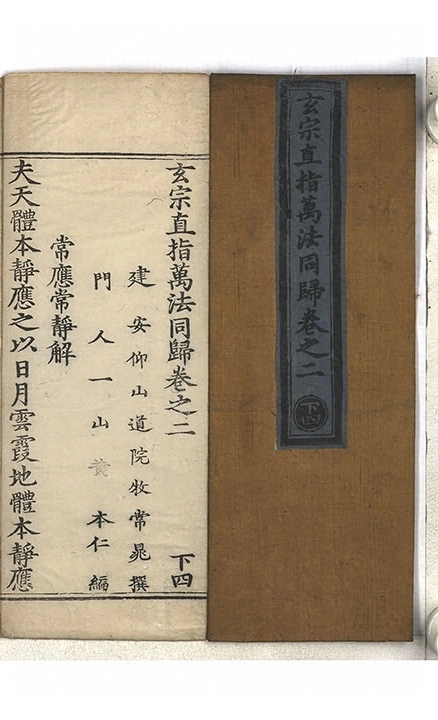 玄宗直指萬法同歸卷之二
下四
玄宗直指萬法同歸卷之二 下四
建安仰山道院牧常晁撰
門人一山黃本仁編
常應常靜解
夫天體本靜應之以日月雲霞地體本靜應